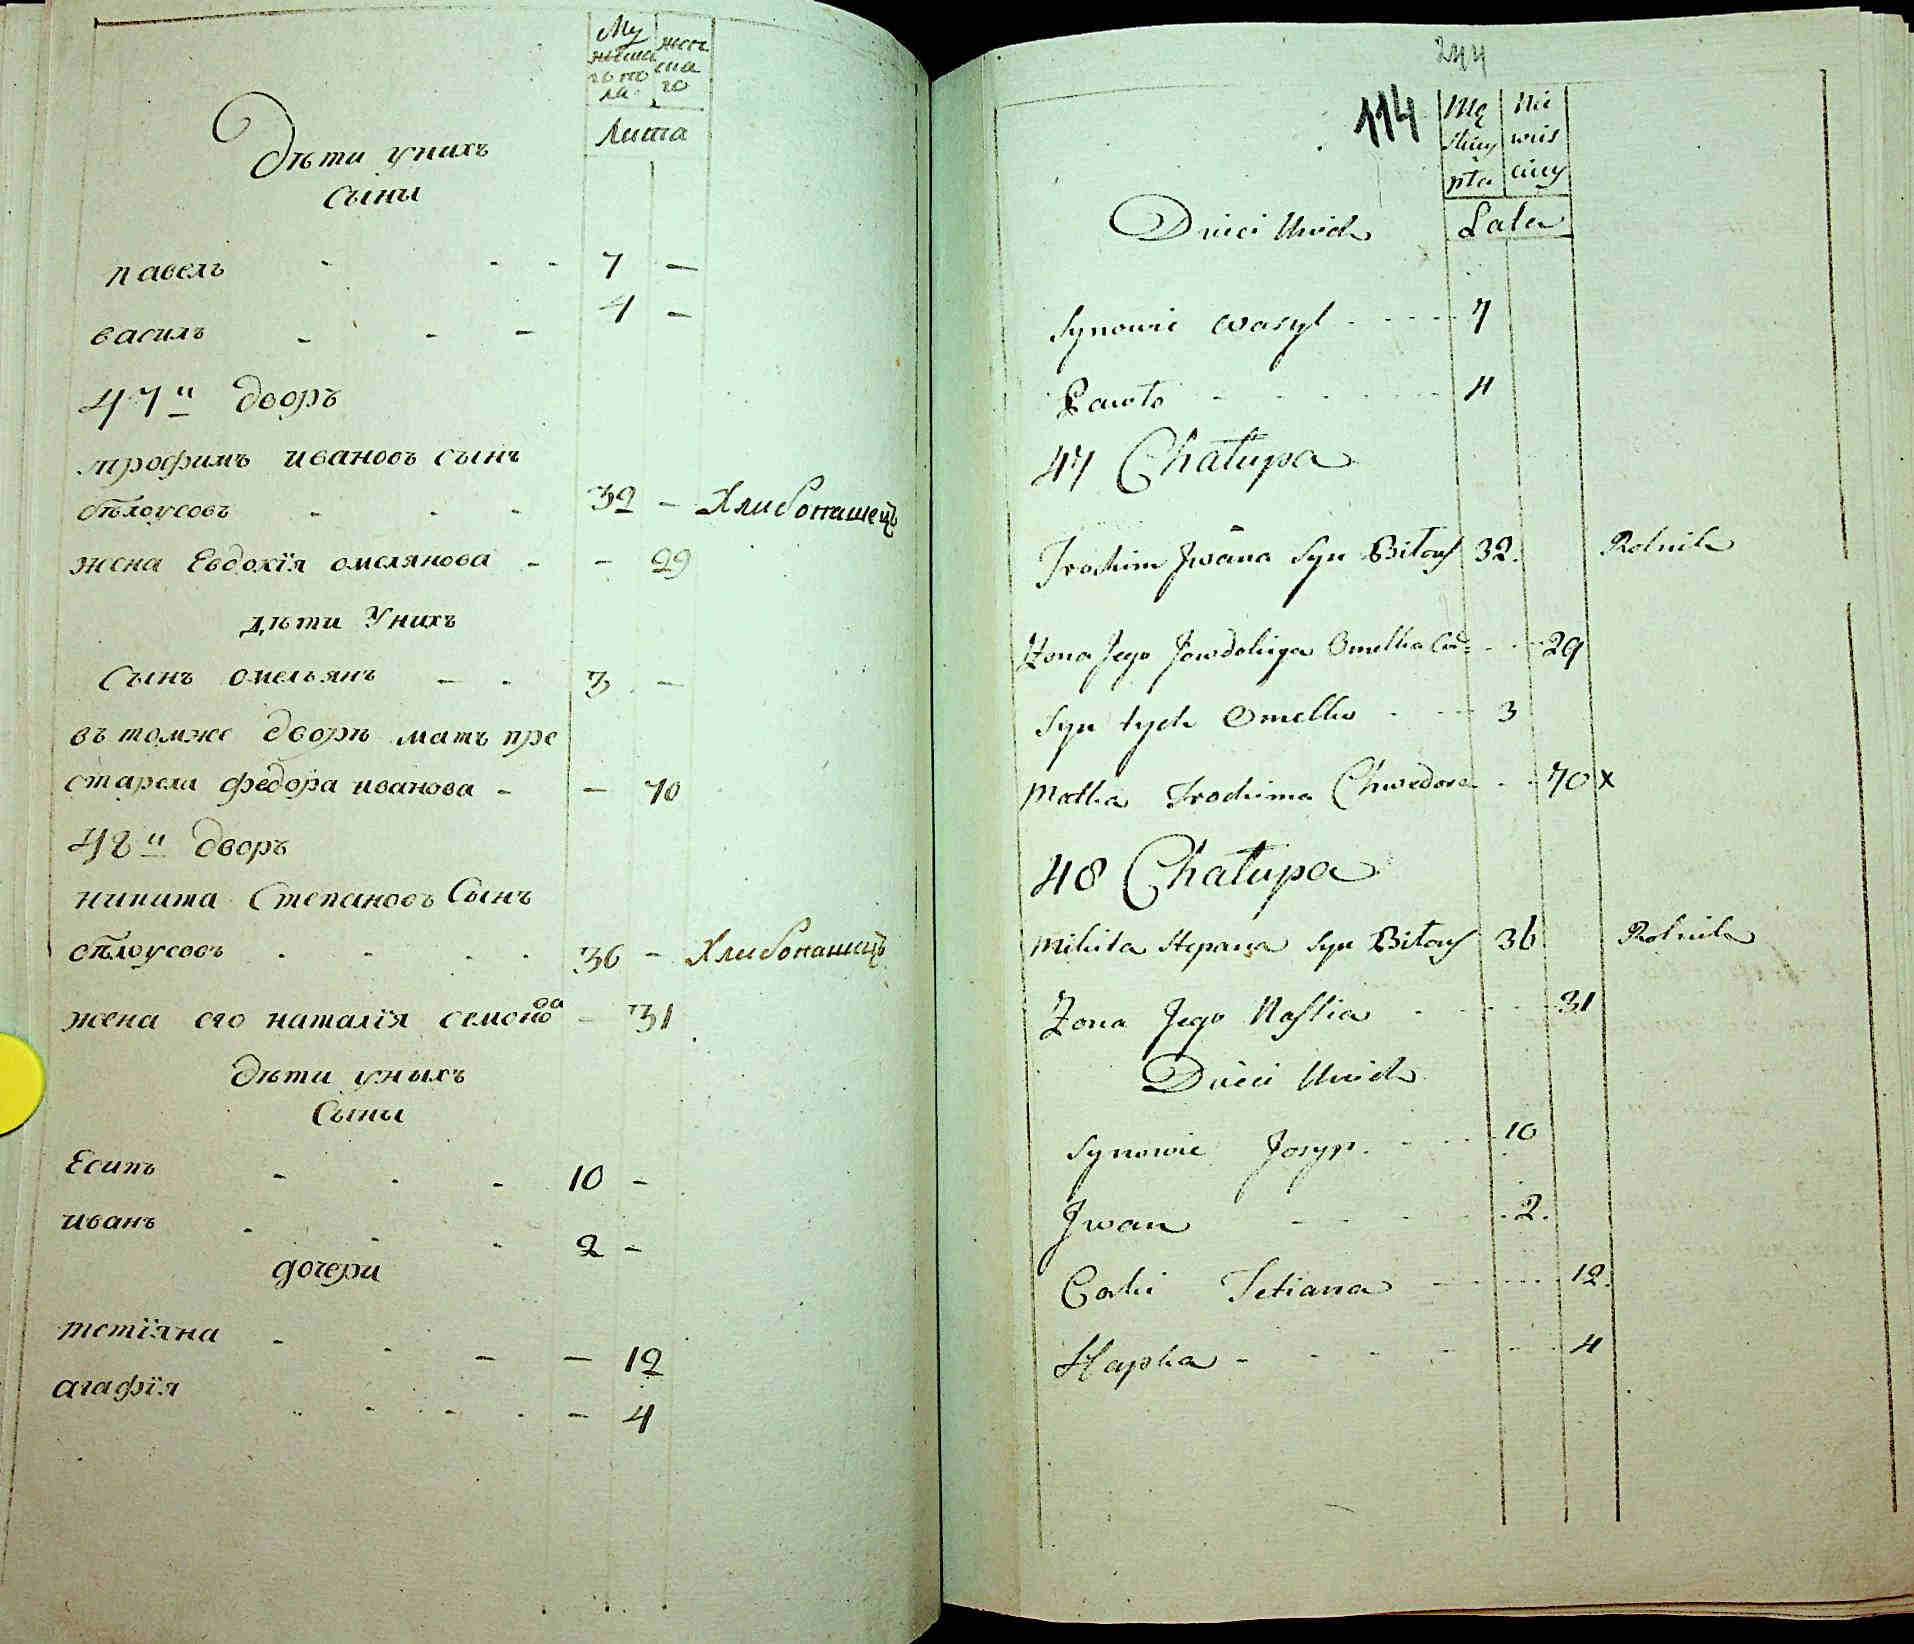 Му
жеска
го по
ла
женска
го
Лита
Дѣти унихъ
сыны
павелъ - - - 7 -
василъ - - - 4 -
47й дворъ
трофимъ ивановъ сынъ
бѣлоусовъ - - - 32 - Хлибопашецъ
жена Евдокїя омелянова - - 29
дѣти Унихъ
Сынъ омельянъ - - 3 -
въ томже дворѣ мать пре
старела федора иванова - - 70
48й дворъ
никита Степановъ Сынъ
бѣлоусовъ - - - 36 - Хлибопашицъ
жена его наталїя семонова - 31
Дѣти уныхъ
Сыны
Есипъ - - - 10 -
иванъ - - - 2 -
дочери
тетїяна - - - - 12
агафїя - - - - 4
244
114
Mę
skiey
płci
Nie
wies
ciey
Lata
Dzieci Unich
Synowie Wasyl - - - - 7
Pawło - - - - 4
47 Chałupa
Trochim Jwana Syn Biłous 32. Rolnik
Zona Jego Jawdokiya Omelka - - 29
Syn tych Omelko - - - 3
Matka Trochima Chwedora - - 70 x
48 Chałupa
Mikita Stepana Syn Biłous 36 Rolnik
Zona Jego Nastia - - - - 31
Dzieci Unich
Synowie Josyp. - - - 10
Jwan - - - - 2.
Corki Tetiana - - - - 12.
Hapka - - - - - 4